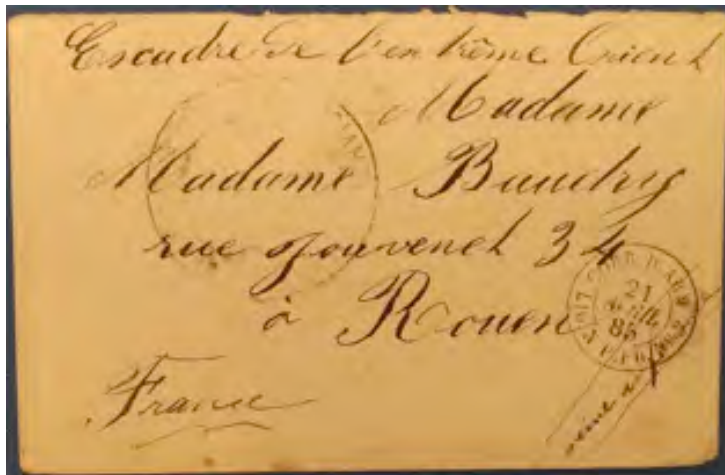 Escadre de l'extrême Orient
Madame
Madame Baudry
rue Jouvenet 34
à Rouen
France
CORR. D. ARM
21
85